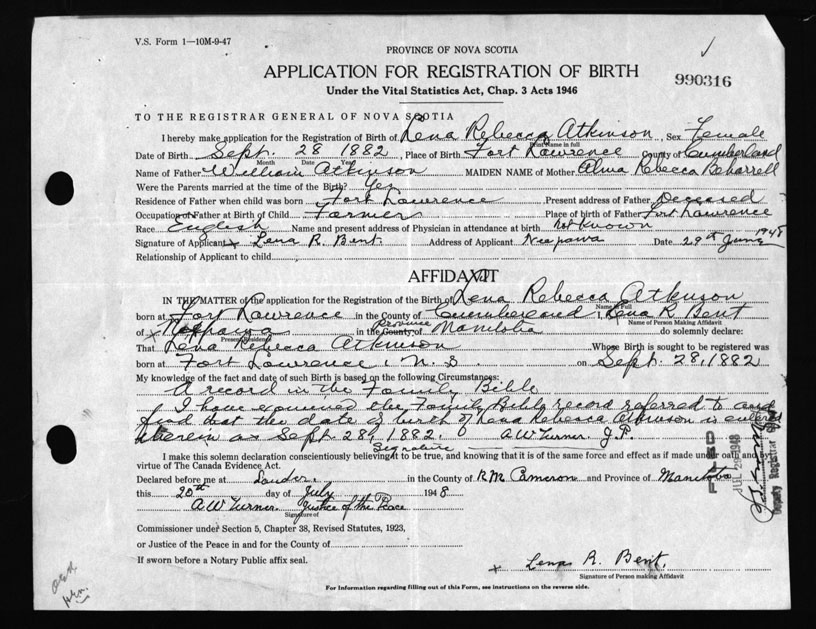 V.S. Form 1—10M-9-47
PROVINCE OF NOVA SCOTIA
APPLICATION FOR REGISTRATION OF BIRTH
990316
Under the Vital Statistics Act, Chap. 3 Acts 1946
TO THE REGISTRAR GENERAL OF NOVA SCOTIA
I hereby make application for the Registration of Birth of Lena Rebecca Atkinson, Sex Female
Print Name in full
Date of Birth Sept. 28 1882, Place of Birth Fort Lawrence County of Cumberland
Month Date Year
Name of Father William Atkinson MAIDEN NAME of Mother Alma Rebecca Beharrell
Were the Parents married at the time of the Birth? Yes
Residence of Father when child was born Fort Lawrence Present address of Father Deceased
Occupation of Father at Birth of Child Farmer Place of birth of Father Fort Lawrence
Race English Name and present address of Physician in attendance at birth not known
Signature of Applicant x Lena R. Bent. Address of Applicant Date 29th June 1948
Relationship of Applicant to child
AFFIDAVIT
IN THE MATTER of the application for the Registration of the Birth of Lena Rebecca Atkinson
Name in Full
born at Fort Lawrence in the County of Cumberland I, Lena R Bent
Name of Person Making Affidavit
of x in the County of Province Manitoba do solemnly declare:
Present Residence
That Lena Rebecca Atkinson Whose Birth is sought to be registered was
born at Fort Lawrence, N.S. on Sept. 28, 1882
My knowledge of the fact and date of such Birth is based on the following Circumstances:
A record in the Family Bible
I have examined the Family Bible record referred to and
find that the date of birth of Lena Rebecca Atkinson is entered
therein as Sept. 28, 1882. A W Turner J.P.
Signature
I make this solemn declaration conscientiously believing it to be true, and knowing that it is of the same force and effect as if made under oath and by
virtue of The Canada Evidence Act.
Declared before me at Lauder. in the County of R.M. Cameron and Province of Manitoba
this 20th day of July 1948
A W Turner. Justice of the Peace
Signature of
Commissioner under Section 5, Chapter 38, Revised Statutes, 1923,
or Justice of the Peace in and for the County of
If sworn before a Notary Public affix seal.
x Lena R. Bent.
Signature of Person making Affidavit
For Information regarding filling out of this Form, see instructions on the reverse side.
FILED
1948
Deputy Registrar